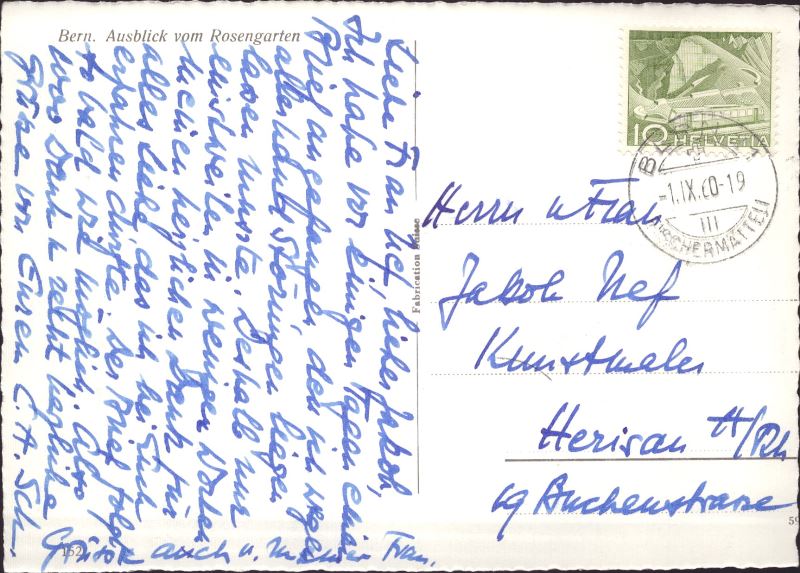 Bern. Ausblick vom Rosengarten
Liebe Frau Nef, lieber Jakob,
Ich habe vor einigen Tagen einen
Brief angefangen den ich wegen
allerhand Störungen liegen
lassen musste. Deshalb nur
einstweilen in wenigen Worten
meinen herzlichen Dank für
alles Liebe, das ich bei Euch
erfahren durfte. Der Brief folgt
so bald wie möglich. Also
Dank u. recht herzliche
Grüsse von Eurem C. A. Sch.
Grüsse auch v. meiner Frau.
152
Fabrication Suisse
10 HELVETIA
BERN
-1.IX.60-19
III
Herrn u Frau
Jakob Nef
Kunstmaler
Herisau A/Rh
69 Buchenstrasse
59